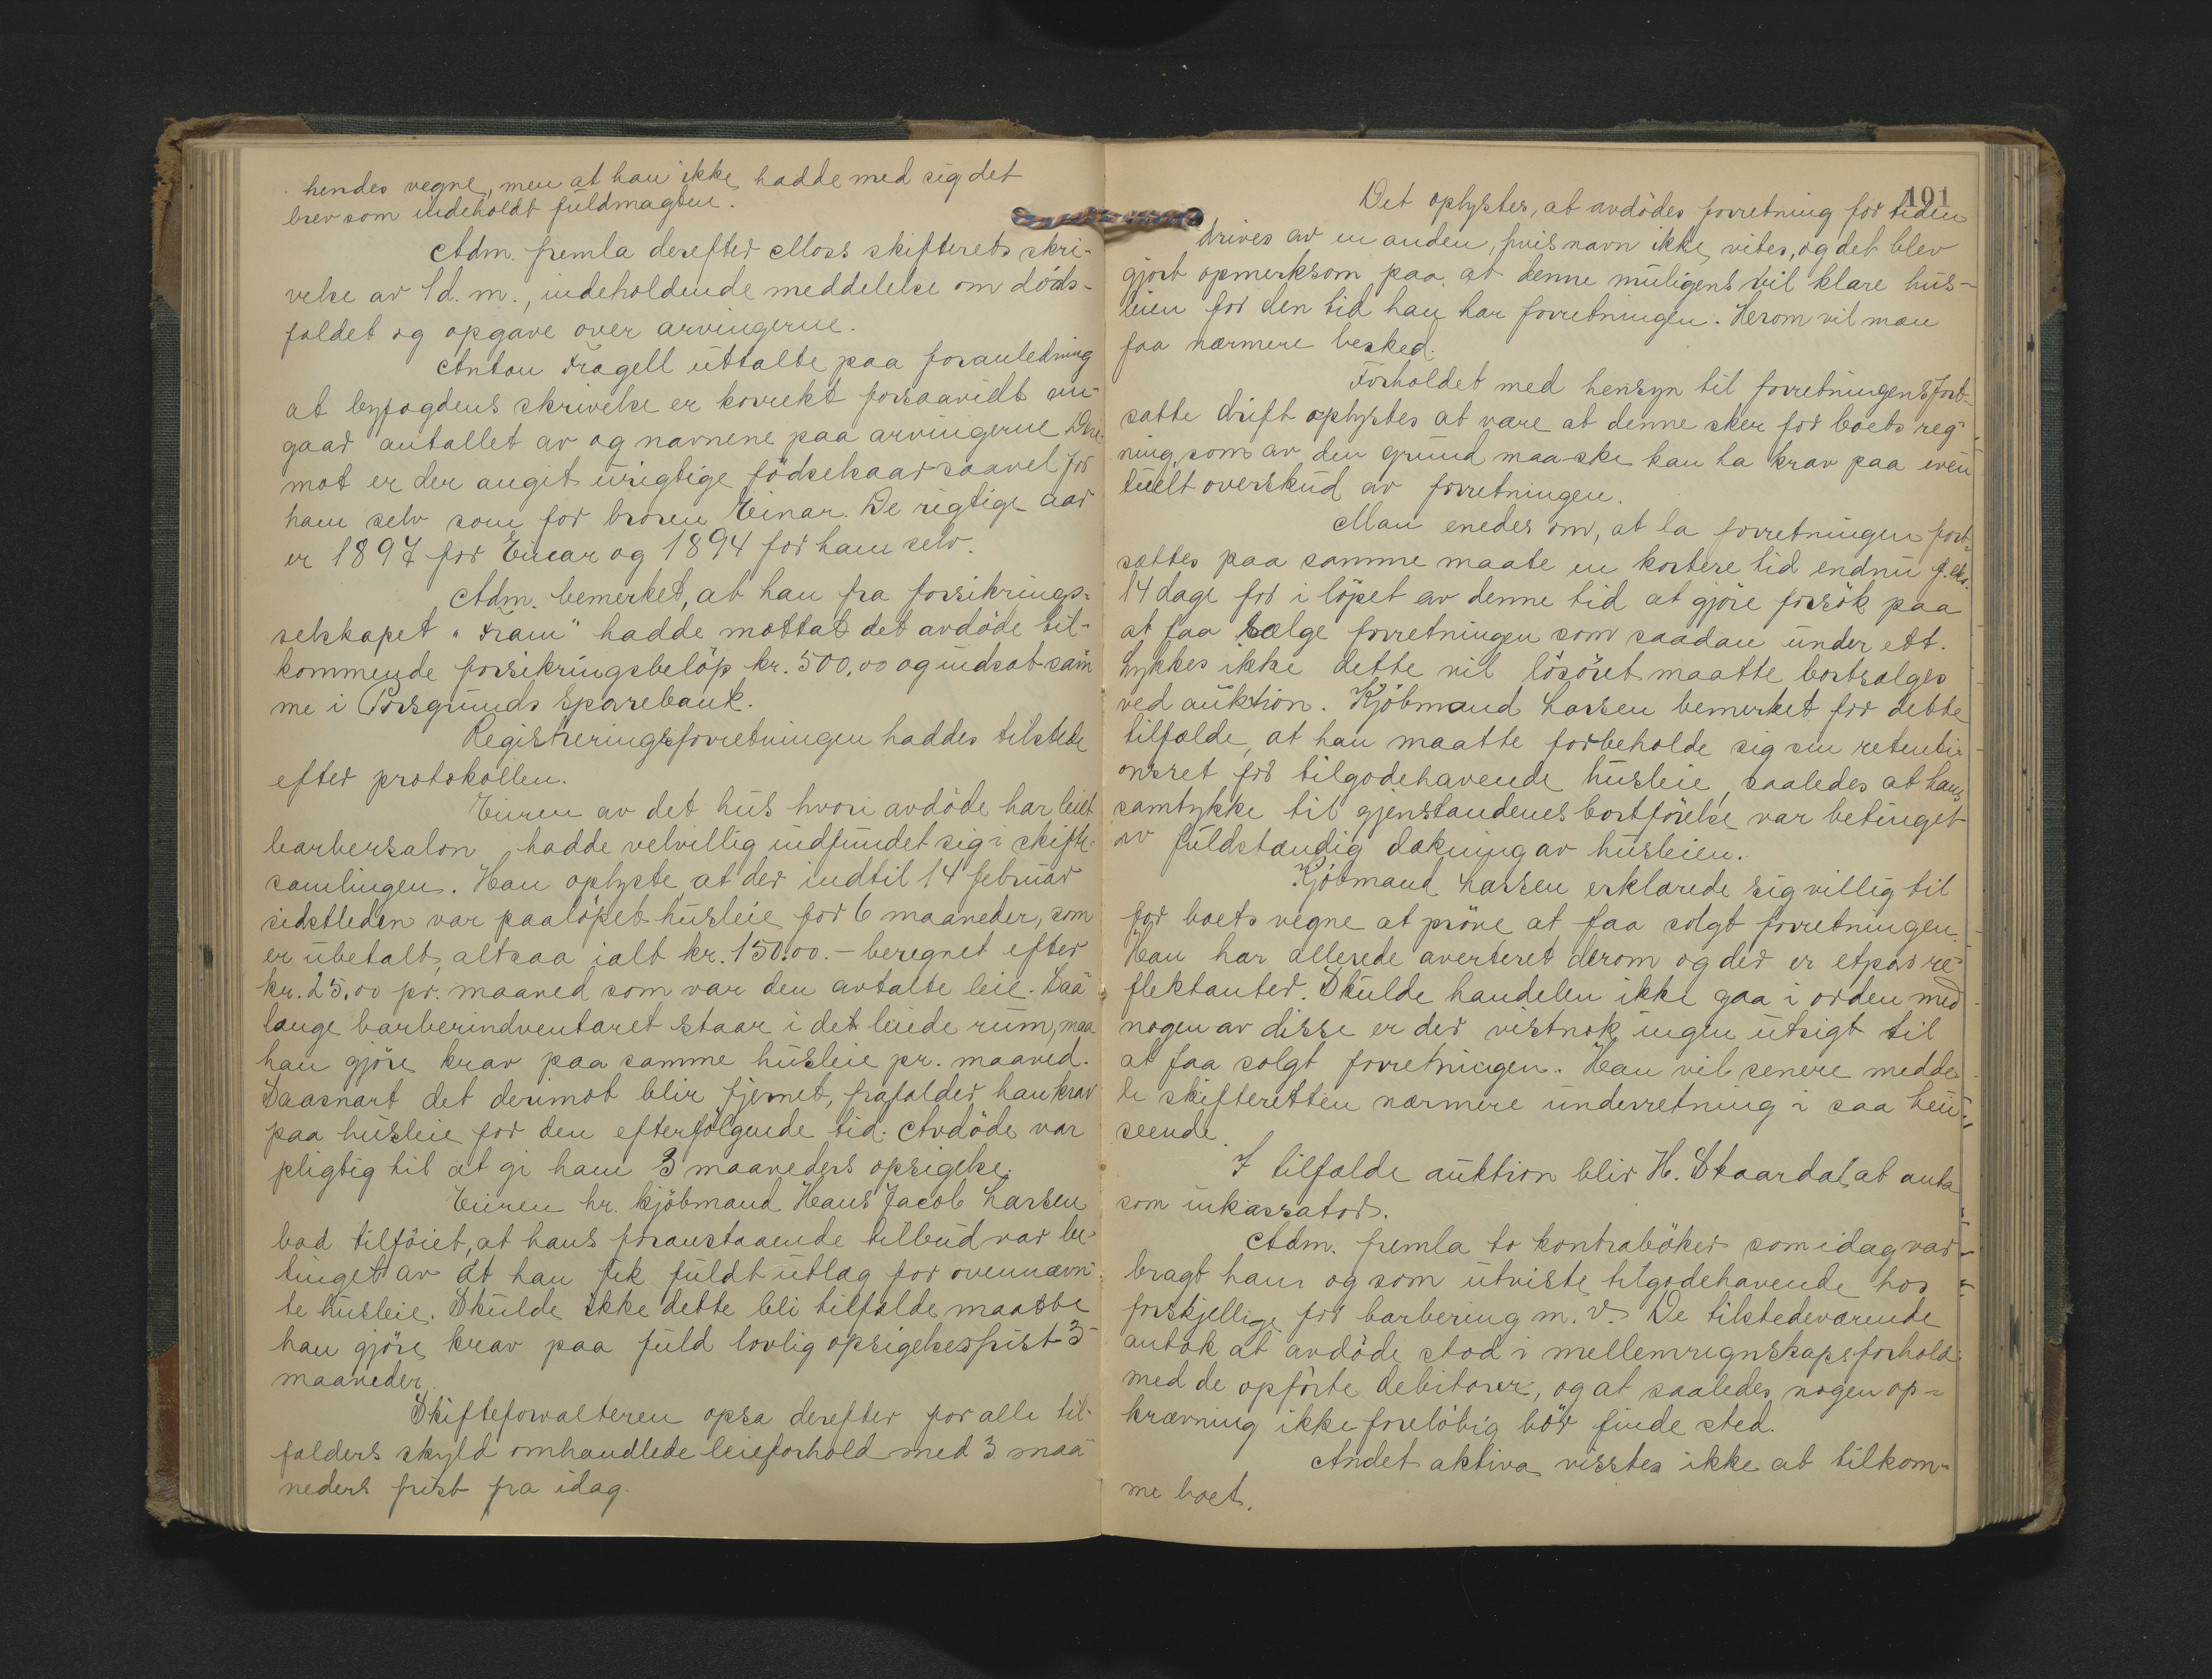 hendes vegne, men at han ikke hadde med sig det
brev som indeholdt fuldmagten.
Adm. fremla derefter Moss skifterets skri-
velse av 1 d. m., indeholdende meddelelse om döds-
faldet og opgave over arvingerne.
Anton Fragell uttalte paa foranledning
at byfogdens skrivelse er korrekt forsaavidt an-
gaar antallet av og navnene paa arvingerne. Deri-
mot er der angit urigtige födselsaar saavel for
ham selv som for broren Einar. De rigtige aar
er 1897 for Einar og 1894 for ham selv.
Adm. bemerket, at han fra forsikrings-
selskapet "Fram" hadde mottat det avdöde til-
kommende forsikringsbelöp kr. 500,00 og indsat sam
me i Porsgrunds Sparebank.
Registreringsforretningen haddes tilstede
efter protokollen.
Eieren av det hus hvori avdöde har leiet
barbersalon hadde velvillig indfundet sig i skifte-
samlingen. Han oplyste at der indtil 14 februar
sidstleden var paalöpet husleie for 6 maaneder, som
er ubetalt, altsaa ialt kr. 150.00.- beregnet efter
kr. 25,00 pr. maaned som var den avtalte leie. Saa
lange barberindventaret staar i det leiede rum, maa
han gjöre krav paa samme husleie pr. maaned.
Saasnart det derimot blir fjernet, frafalder han krav
paa husleie for den efterfölgende tid. Avdöde var
pligtig til at gi ham 3 maaneders opsigelse.
Eieren hr. kjöbmand Hans Jacob Larsen
bad tilföiet, at hans foranstaaende tilbud var be-
tinget av at han fik fuldt utlag for ovennævn-
te husleie. Skulde ikke dette bli tilfælde maatte
han gjöre krav paa fuld lovlig opsigelsesfrist 3
maaneder.
Skifteforvalteren opsa derefter for alle til-
fælders skyld omhandlede leieforhold med 3 maa
neders frist fra idag.
101
Det oplystes, at avdödes forretning for tiden
drives av en anden, hvis navn ikke vites, og det blev
gjort opmerksom paa, at denne muligens vil klare hus-
leien for den tid han har forretningen. Herom vil man
faa nærmere besked.
Forholdet med hensyn til forretningens fort-
satte drift oplystes at være at denne sker for boets reg-
ning, som av den grund maaske kan ha krav paa even
tuelt overskud av forretningen.
Man enedes om, at la forretningen fort-
sættes paa samme maate en kortere tid endnu f. eks.
14 dage for i löpet av denne tid at gjöre forsök paa
at faa sælge forretningen som saadan under ett.
Lykkes ikke dette vil lösöret maatte bortsælges
ved auktion. Kjöbmand Larsen bemerket for dette
tilfælde, at han maatte forbeholde sig sin retenti-
onsret for tilgodehavende husleie, saaledes at hans
samtykke til gjenstandenes bortförelse var betinget
av fuldstændig dækning av husleien.
Kjöbmand Larsen erklærede sig villig til
for boets vegne at pröve at faa solgt forretningen.
Han har allerede averteret derom og der er etpar re-
flektanter. Skulde handelen ikke gaa i orden med
nogen av disse er der vistnok ingen utsigt til
at faa solgt forretningen. Han vil senere medde-
le skifteretten nærmere underretning i saa hen-
seende.
I tilfælde auktion blir H. Skaardal at anta
som inkassator.
Adm. fremla to kontraböker som idag var
bragt ham og som utviste tilgodehavende hos
forskjellige for barbering m. v. De tilstedeværende
antok at avdöde stod i mellemregnskapsforhold
med de opförte debitorer, og at saaledes nogen op-
krævning ikke foreløbig bör finde sted.
Andet aktiva visstes ikke at tilkom-
me boet.